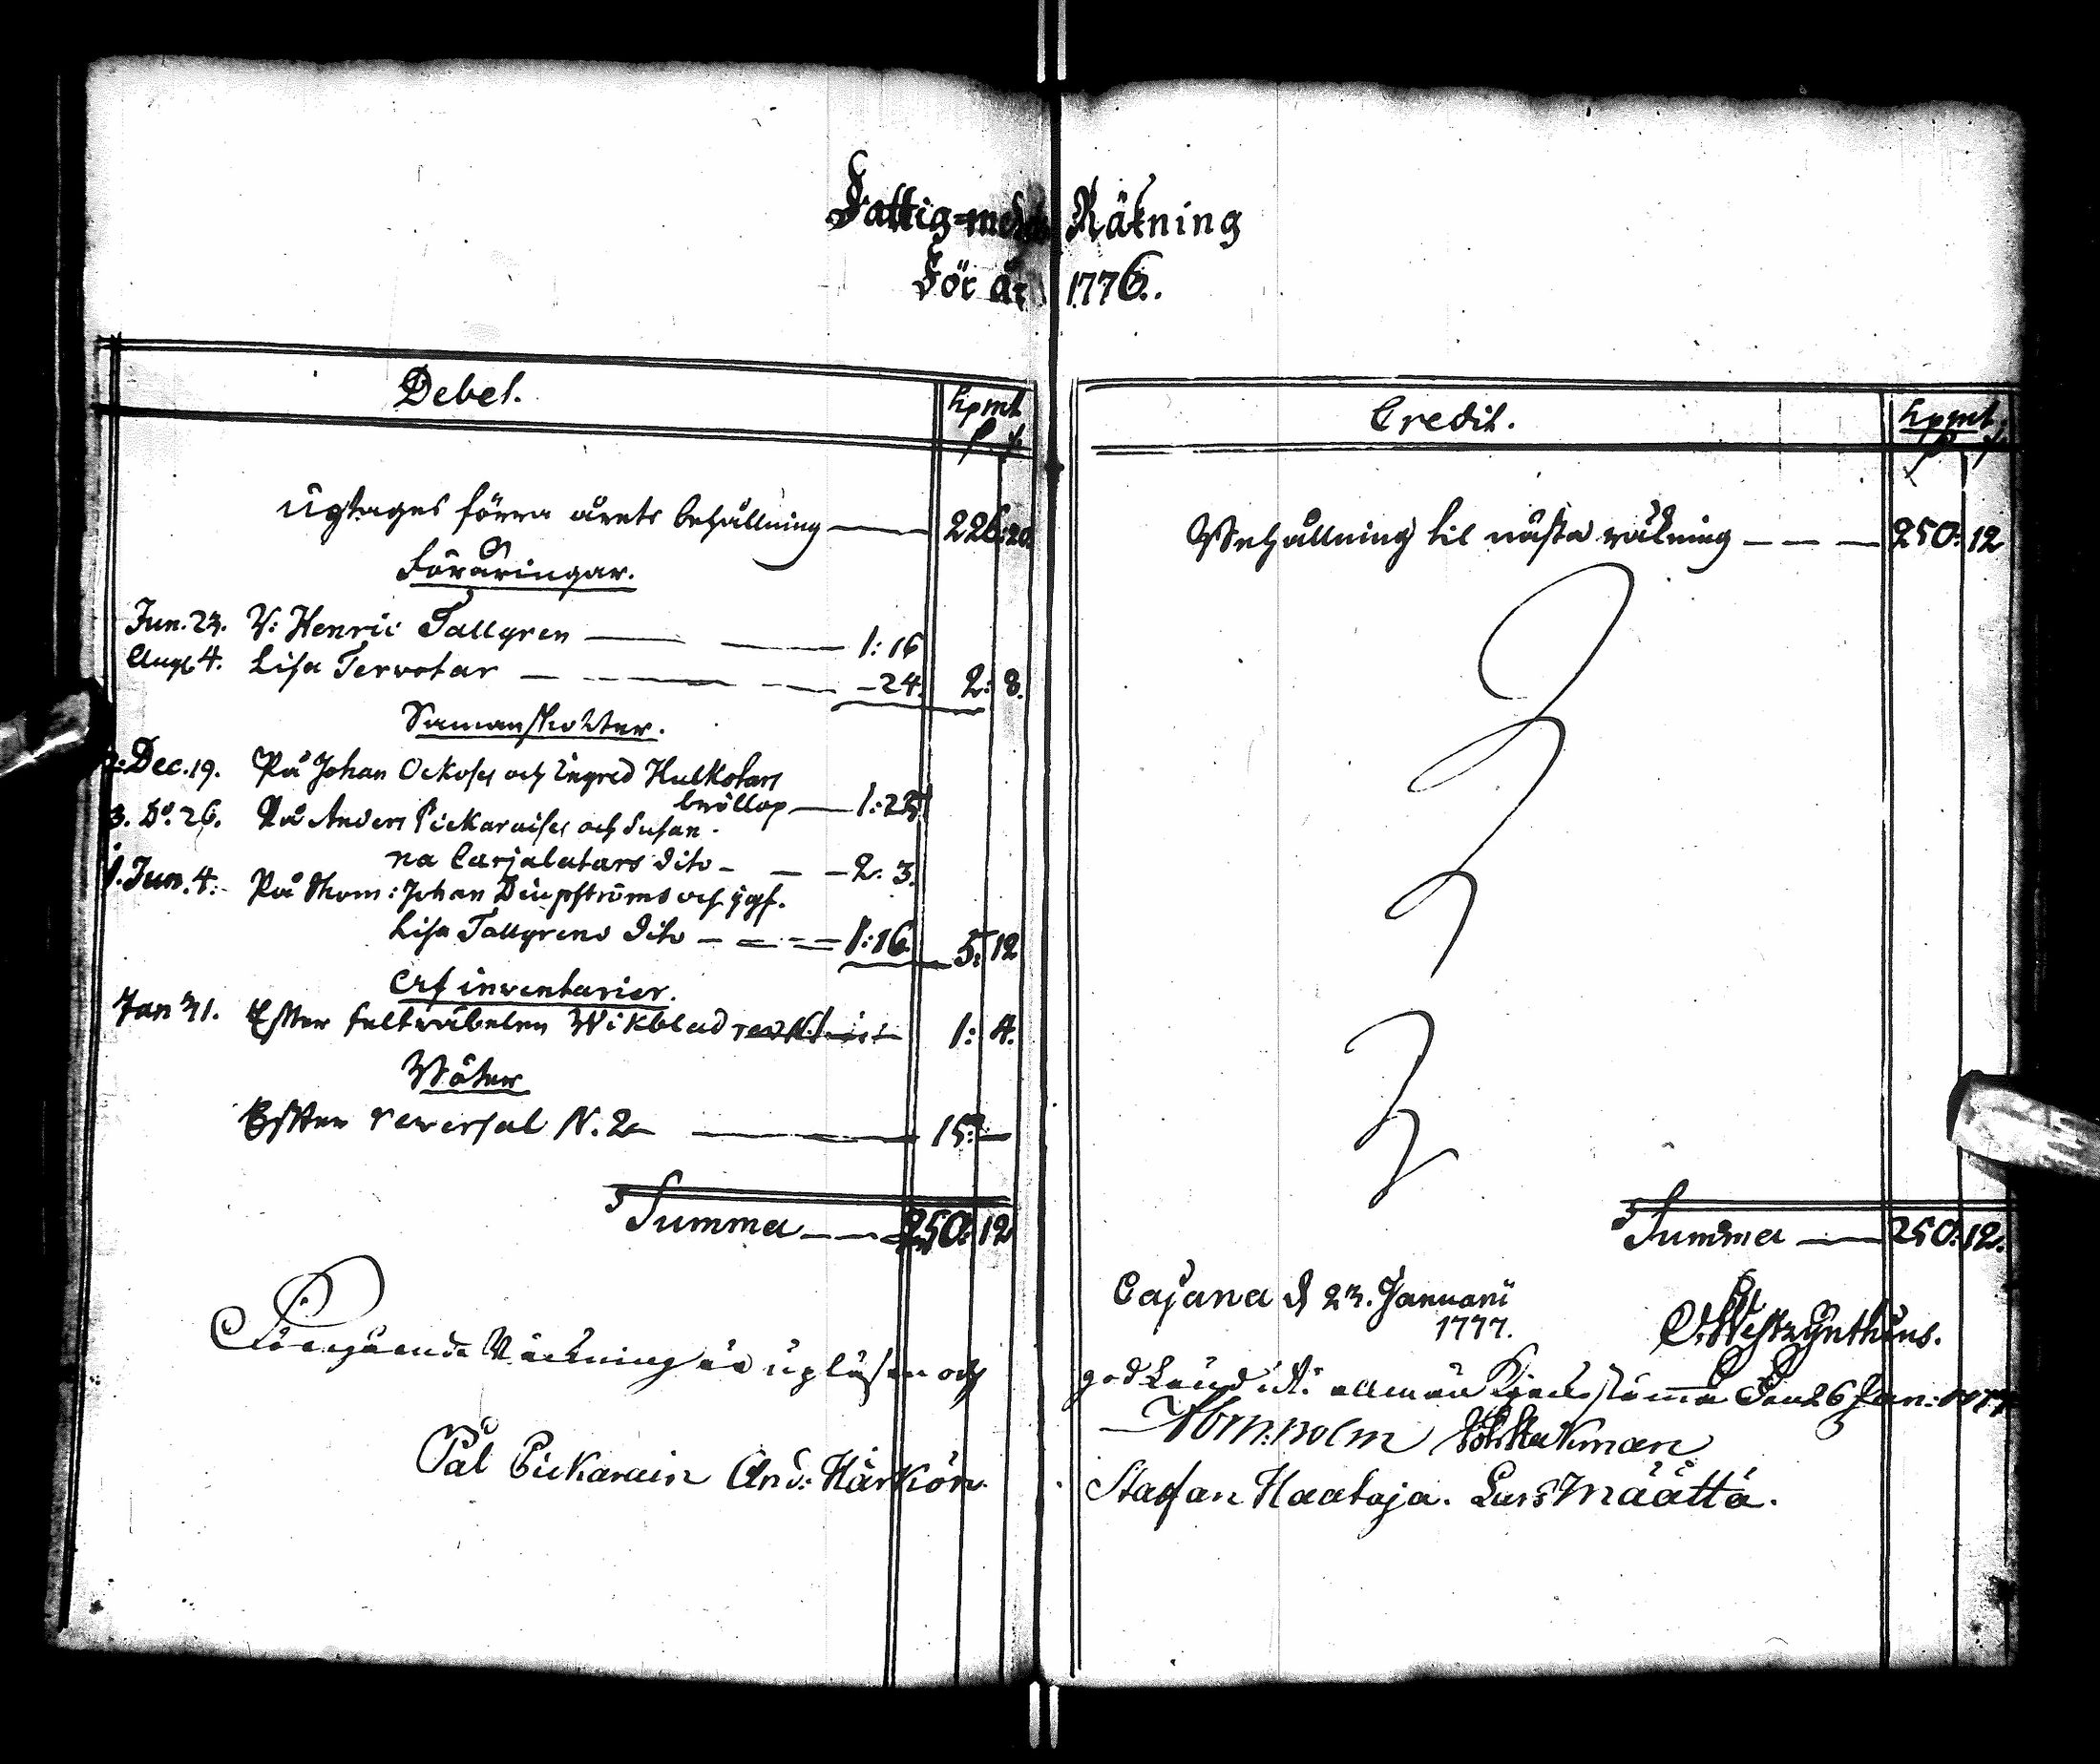 Fattig-medels Räkning
För år 1776.
Debet.
kpmt
Uptages förra årets behållning — 226:20.
Föräringar.
Jun. 23. V: Henric Tallgren — 1:16
Aug. 4. Lisa Tervotar — -24. 2: 8.
Sammanskotter.
2. Dec. 19. På Johan Ockoses och Ingred Hulkotars
bröllop — 1:25
3. Do. 26. På Anders Pickaraises och Susan-
na Carjalatars dito — 2. 3.
1. Jun. 4. På Skom: Johan Diupströms och jgf.
Lisa Tallgrens dito — 1:16. 5: 12
Af inventarier.
Jan 31. Efter feltwäbelen Wikblad — 1: 4.
Böter
Efter reversal N. 2 — 15: —
Summa — 250: 12
Föregående Räckning är upläsen och
Pål Pickarain And: Härkön.
Credit.
kpmt
Behållning til nästa räkning — 250: 12
Summa — 250: 12.
Cajana d. 23. Januarii
1777.
godkänd uti allmän Kyrckostämma Den 26 Jan: 1777
Staffan Haataja. Lars Määttä.